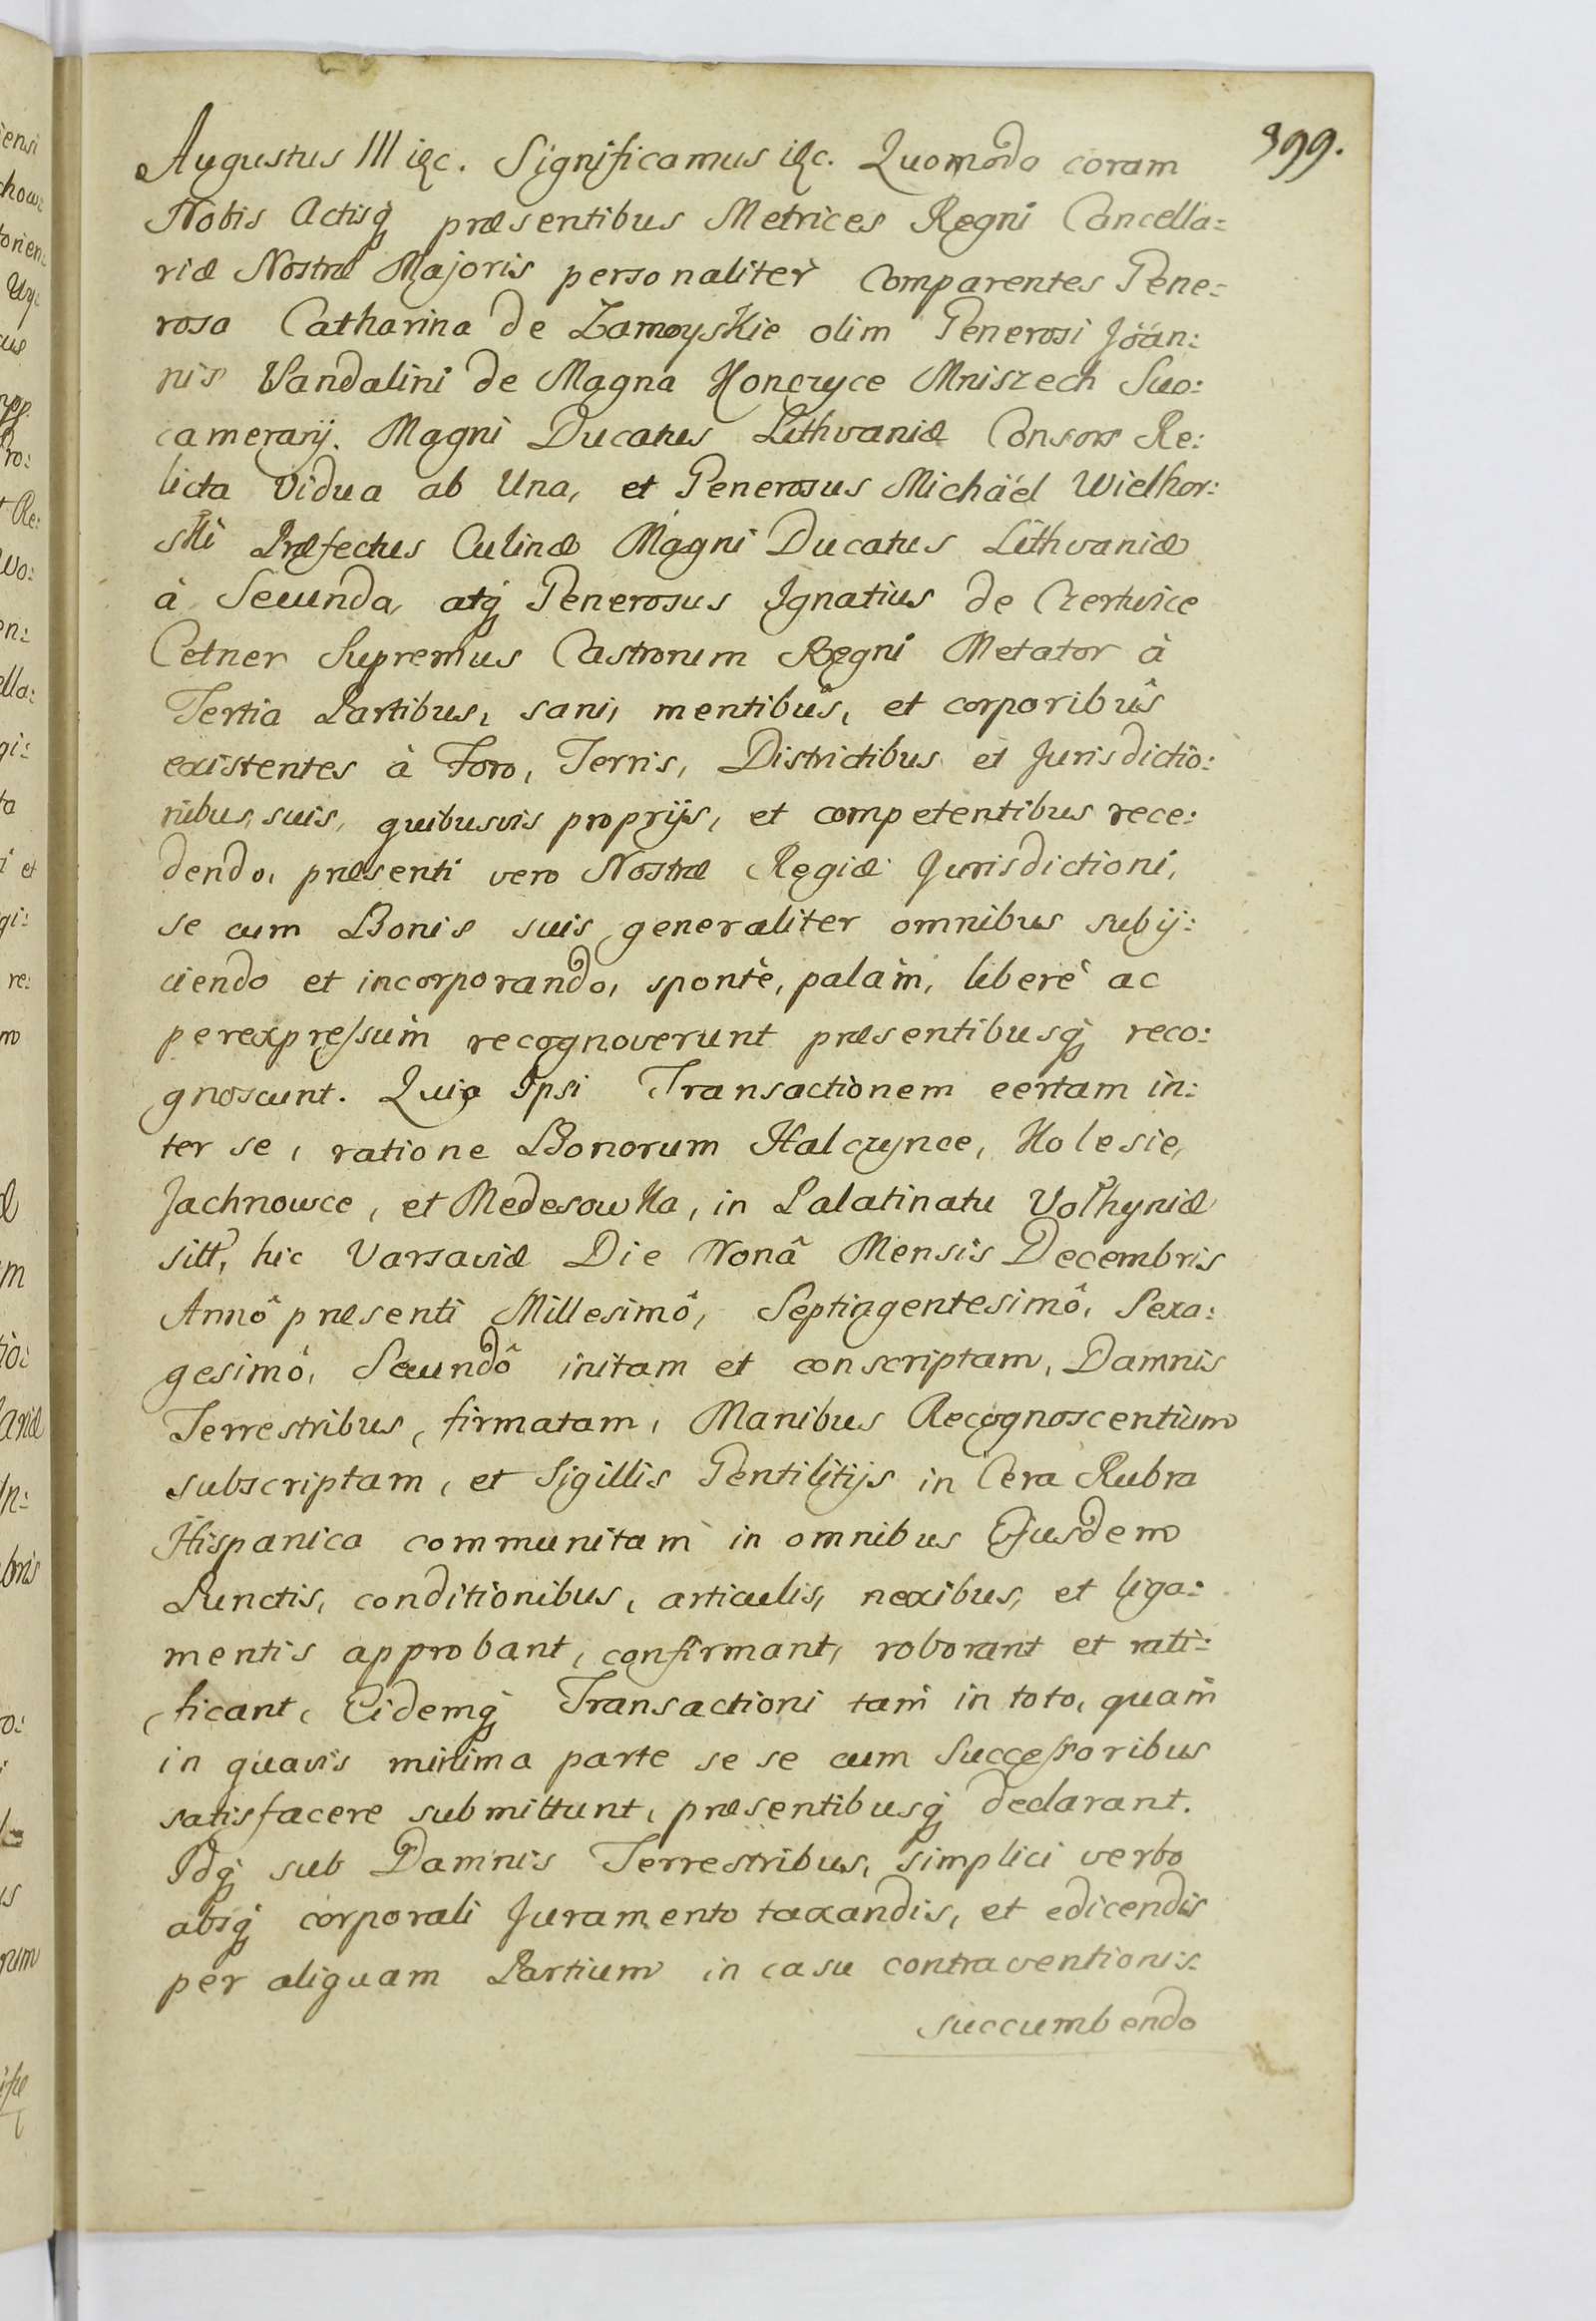 399.
Augustus III &c. Significamus &c. Quomodo coram
Nobis Actisq́ præsentibus Metrices Regni Cancella:
riæ Nostræ Majoris personaliter Comparentes Gene:
rosa Catharina de Zamoyskie olim Generosi Joän:
nis Vandalini de Magna Konczyce Mniszech Suc:
camerarij. Magni Ducatus Lithvaniæ Consors Re:
licta Vidua ab Una, et Generosus Michäel Wielhor:
ski Præfectus Culinæ Magni Ducatus Lithvaniæ
à Secunda, atq́ Generosus Ignatius de Czertwice
Cetner Supremus Castrorum Regni Metator à
Tertia Partibus, sani, mentibûs, et corporibûs
existentes à Foro, Terris, Districtibus et Jurisdictio:
nibus, suis, quibusvis proprijs, et competentibus rece:
dendo, præsenti vero Nostræ Regiæ Jurisdictioni,
se cum Bonis suis generaliter omnibus subij:
ciendo et incorporando, spontè, palàm, liberè ac
perexpressum recognoverunt præsentibusq́ reco:
gnoscunt. Quia Ipsi Transactionem certam in:
ter se, ratione Bonorum Halczynce, Holesie,
Jachnowce, et Medesowka, in Palatinatu Volhyniæ
sitt, hic Varsaviæ Die Nonâ Mensis Decembris
Annô præsenti Millesimô, Septingentesimô, Sexa:
gesimô, Secundô initam et conscriptam, Damnis
Terrestribus, firmatam, Manibus Recognoscentium
subscriptam, et Sigillis Gentilitijs in Cera Rubra
Hispanica communitam in omnibus Ejusdem
Punctis, conditionibus, articulis, nexibus, et liga:
mentis approbant, confirmant, roborant et rati:
ficant, Eidemq́ Transactioni tam in toto, quam
in quavis minima parte se se cum Successoribus
satisfacere submittunt, præsentibusq́ declarant.
Idq́ sub Damnis Terrestribus, simplici verbo
absq́ corporali Juramento taxandis, et edicendis
per aliquam Partium in casu contraventionis
succumbendo